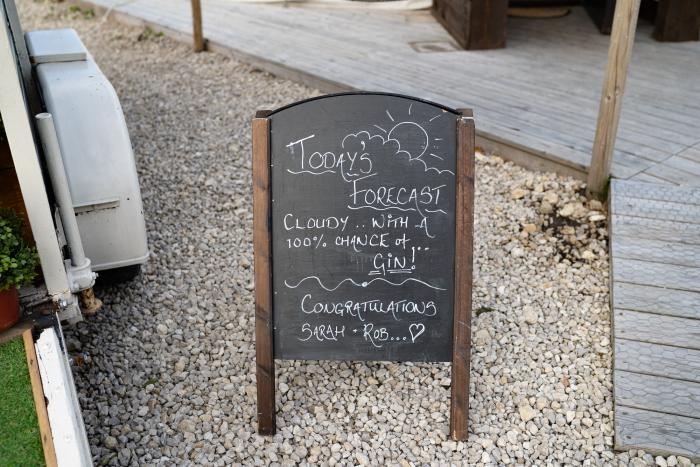 TODAY'S
FORECAST
CLOUDY .. WITH A
100% CHANCE of
GIN!
CONGRATULATIONS
SARAH + ROB...♡